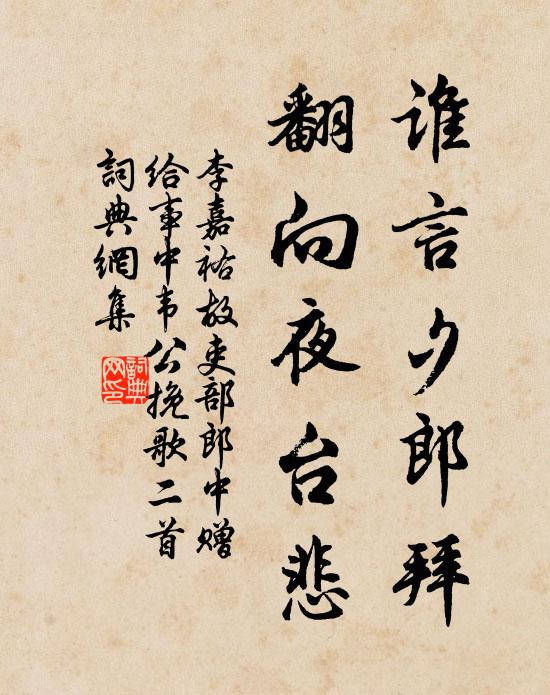 谁言夕郎拜
翻向夜台悲
李嘉祐故吏部郎中赠
给事中韦公挽歌二首
词典網集
詞典網印